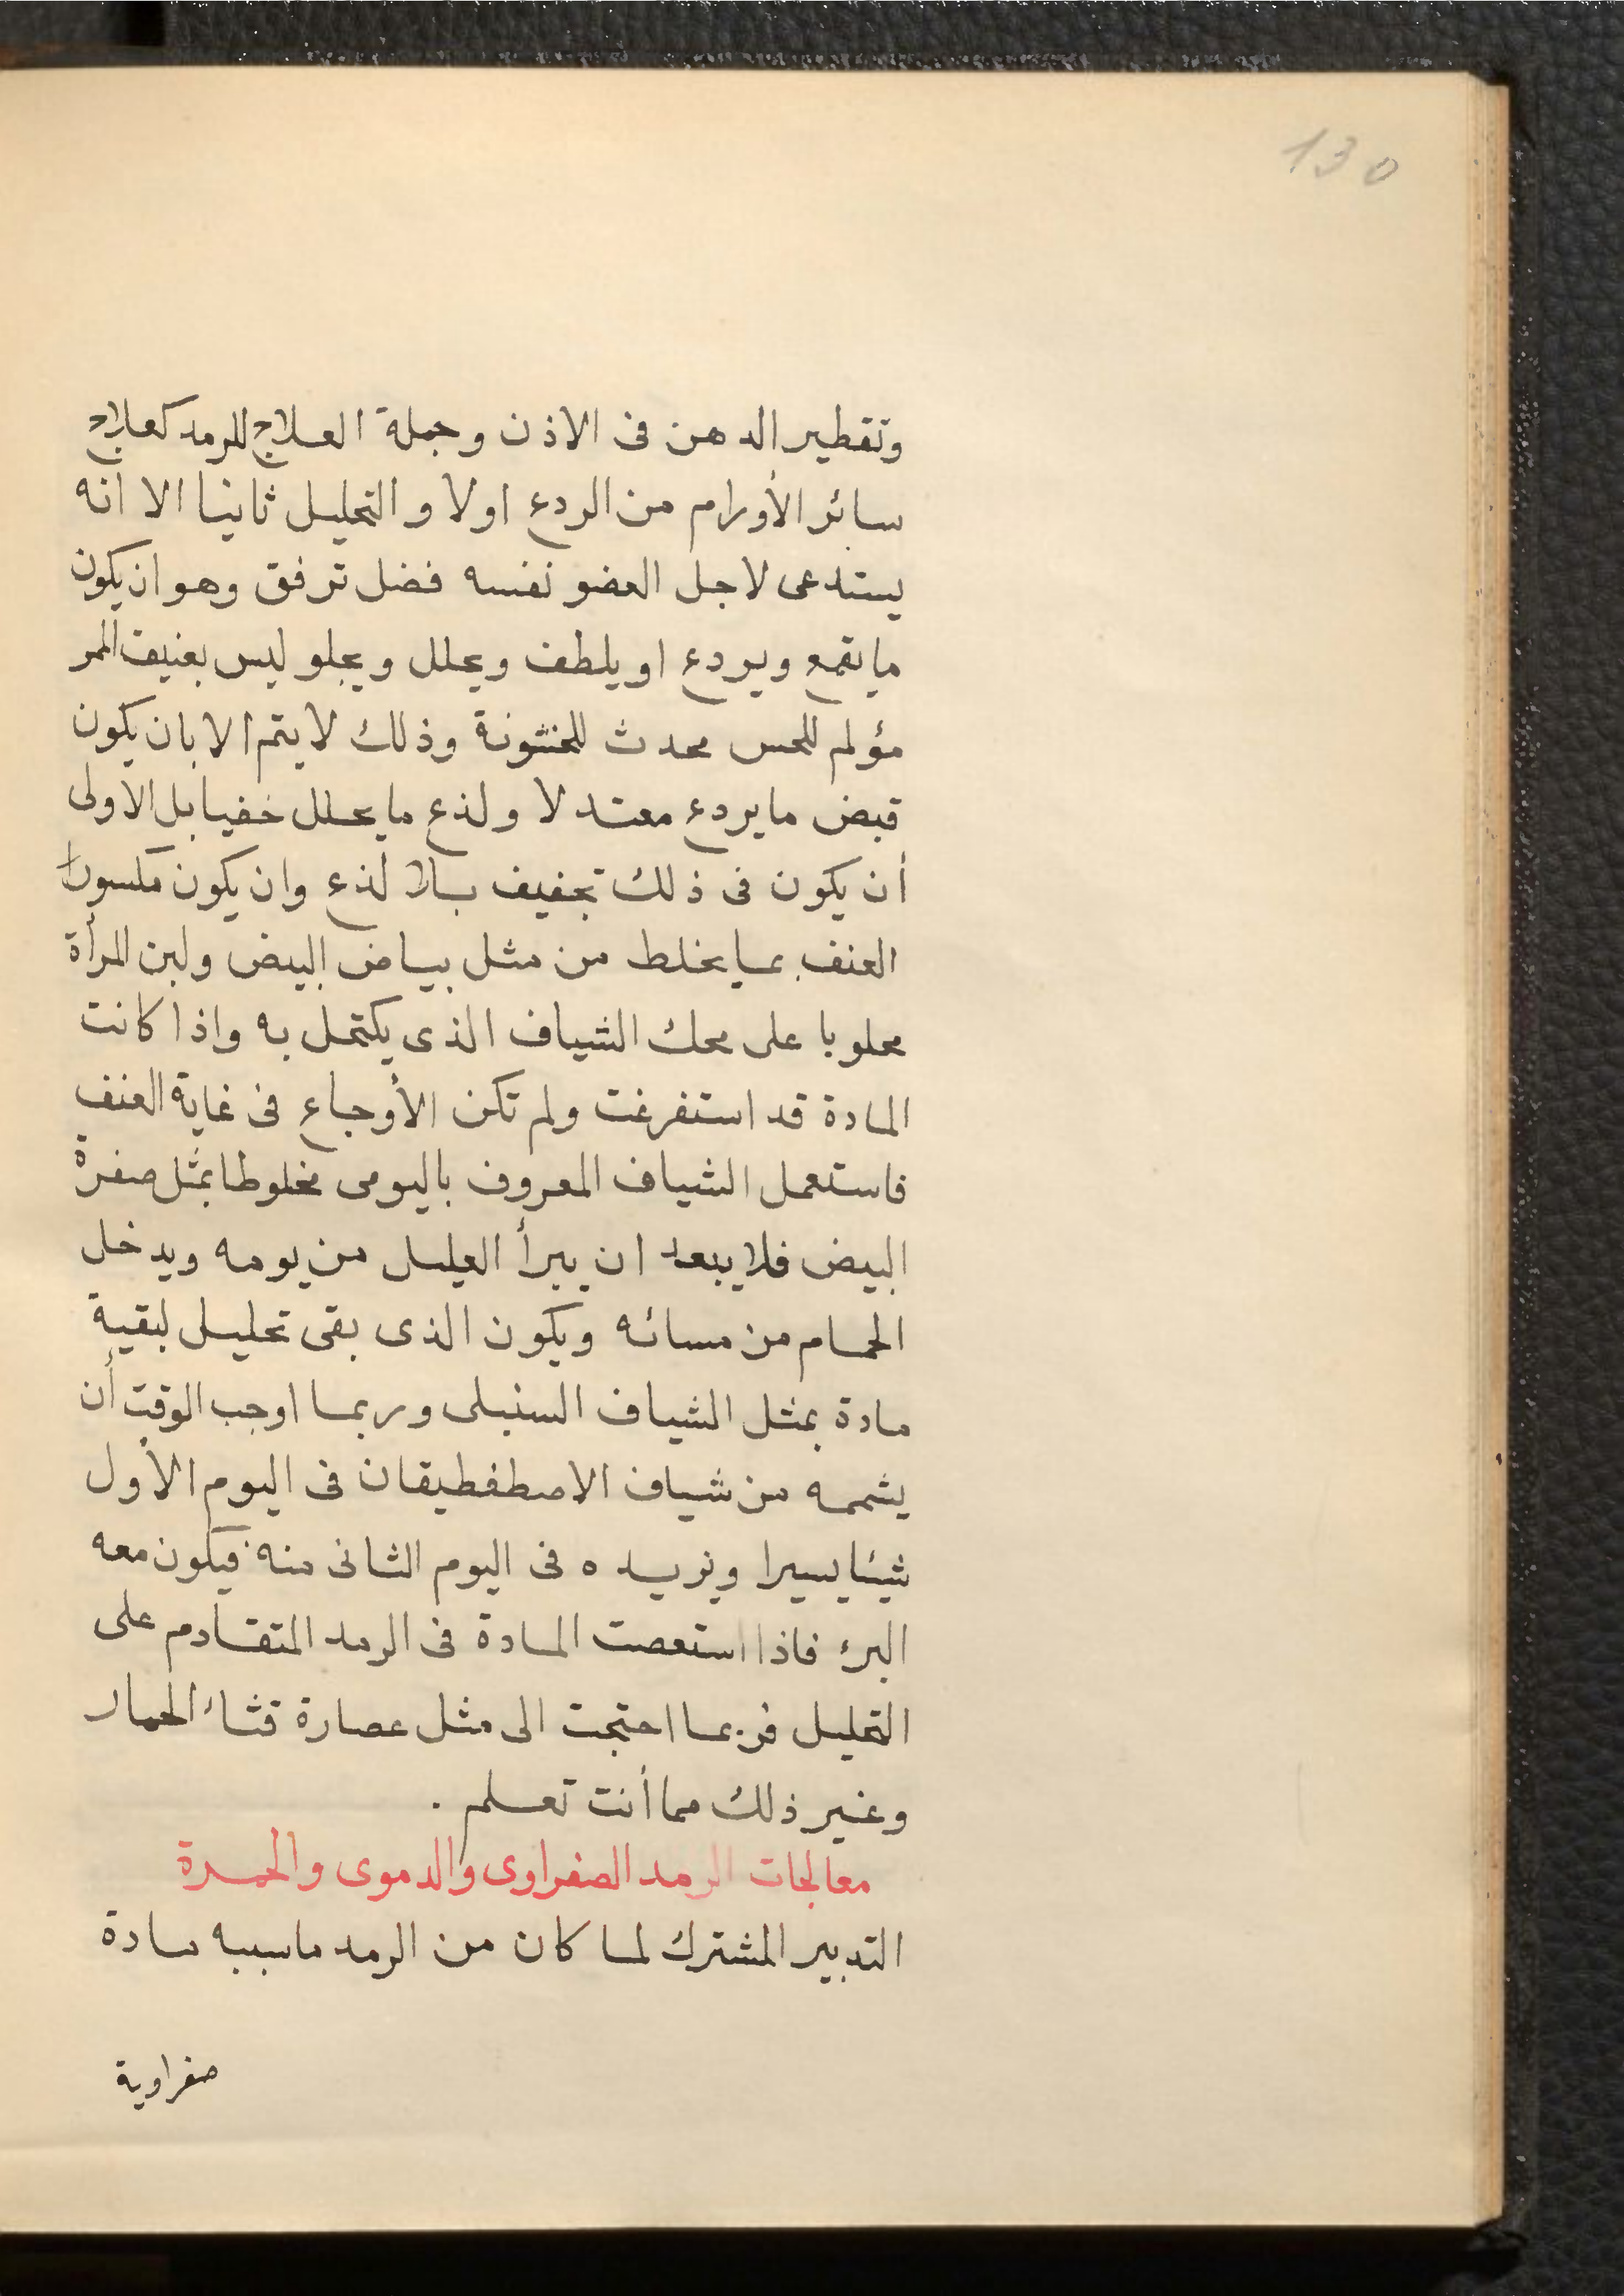 130
وتقطير الدهن فى الاذن وجملة العلاج للرمد كعلاج
سائر الأورام من الردع اولا والتحليل ثانيا الا انه
يستدعى لاجل العضو نفسه فضل ترفق وهو ان يكون
ما يقمع ويردع او يلطف ويحلل ويجلو ليس بعنيف المر
مؤلم للحس محدث للخشونة وذلك لا يتم الا بان يكون
قبض ما يردع معتدلا ولذع ما يحلل خفيا بل الاولى
أن يكون فى ذلك تجفيف بلا لذع وان يكون مكسورا
العنف بما يخلط من مثل بياض البيض ولبن المرأة
محلوبا على محك الشياف الذى يكتحل به واذا كانت
المادة قد استفرغت ولم تكن الأوجاع فى غاية العنف
فاستعمل الشياف المعروف باليومى مخلوطا بمثل صفرة
البيض فلا يبعد ان يبرأ العليل من يومه ويدخل
الحمام من مسائه ويكون الذى بقى تحليل لبقية
مادة بمثل الشياف السنبلى وربما اوجب الوقت أن
يشممه من شياف الاصطفطيقان فى اليوم الأول
شيئا يسيرا ويزيده فى اليوم الثانى منه فيكون معه
البرء فاذا استعصت المادة فى الرمد المتقادم على
التحليل فربما احتجت الى مثل عصارة قثاء الحمار
وغير ذلك مما أنت تعلم .
معالجات الرمد الصفراوى والدموى والحمرة
التدبير المشترك لما كان من الرمد ما سببه مادة
صفراوية